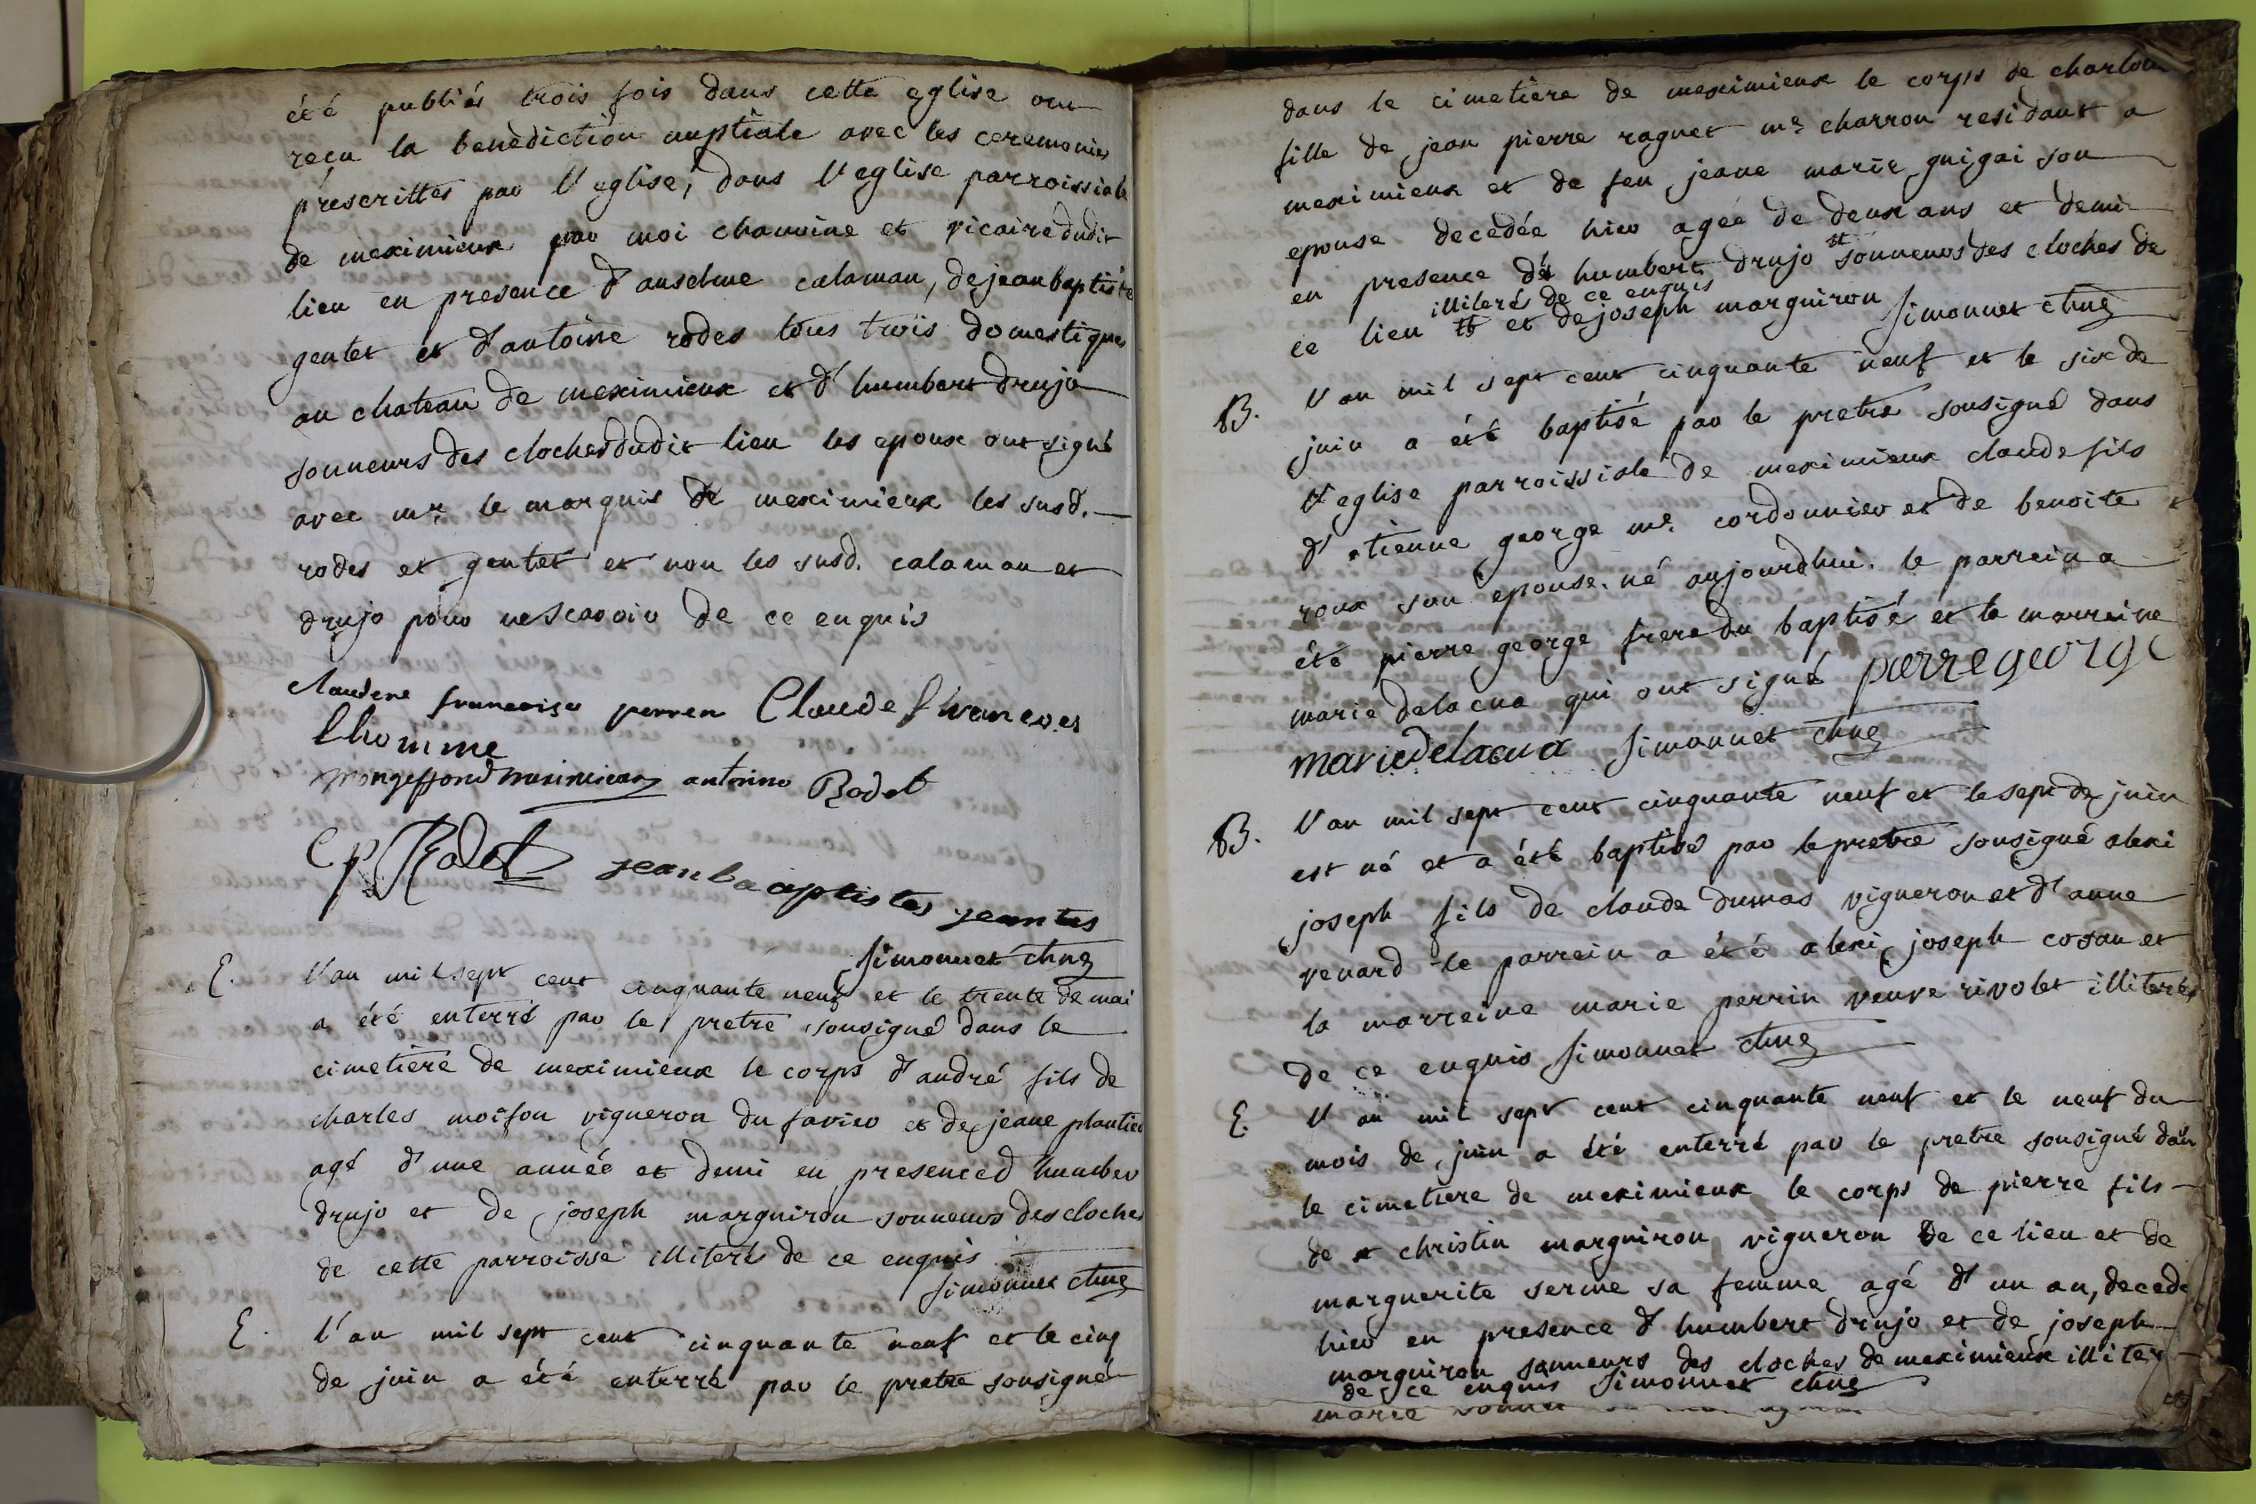 été publiés trois fois dans cette eglise ont
reçu la benediction nuptiale avec les ceremonies
prescrittes par l'eglise, dans l'eglise parroissiale
de meximieux par moi chanoine et vicaire dudit
lieu en presence d'anselme calaman, de jean baptiste
gentet et d'antoine rodes tous trois domestiques
au chateau de meximieux et d'humbert drujo
sonneurs des cloches dudit lieu les epoux ont signé
avec mr. le marquis de meximieux les susd.
rodes et gentet et non les susd. calaman et
drujo pour ne scavoir de ce enquis
claudene francoise perren Claude fhrancois
lhomme
mongeffond meximieux antoinno Rodet
C p Rodet jean baaptistes jeantes
simonnet chne
E. l'an mil sept cent cinquante neuf et le trente de mai
a été enterré par le pretre sousigné dans le
cimetiere de meximieux le corps d'andré fils de
charles moifon vigneron du favier et de jeane plantier
agé d'une année et demi en presence d'humber
drujo et de joseph marguiron sonneurs des cloches
de cette parroisse illiterés de ce enquis
simonnet chne
E. l'an mil sept cent cinquante neuf et le cinq
de juin a été enterré par le pretre sousigné
dans le cimetiere de meximieux le corps de
fille de jean pierre raguet me. charron residant a
meximieux et de feu jeane marie guigai son
epouse decedée hier agée de deux ans et demi
en presence de humbert drujo sonneurs des cloches de
illiterés de ce enquis
ce lieu et de joseph marguiron simonnet chne
B. l'an mil sept cent cinquante neuf et le six de
juin a été baptisé par le pretre sousigné dans
l'eglise parroissiale de meximieux claude fils
d'etienne george me. cordonnier et de benoite
roux son epouse. né aujourdhui. le parrein a
été pierre george frere du baptisé et la marreine
marie delacua qui ont signé pierre george
marie delacua simonnet chne
B. l'an mil sept cent cinquante neuf et le sept de juin
est né et a été baptisé par le pretre sousigné alexi
joseph fils de claude dumas vigneron et d'anne
renard le parrein a été alexi joseph cozan et
la marreine marie perrin veuve rivolet illiterés
de ce enquis simonnet chne
E. l'an mil sept cent cinquante neuf et le neuf du
mois de juin a été enterré par le pretre sousigné dan
le cimetiere de meximieux le corps de pierre fils
de christin marguiron vigneron de ce lieu et de
marguerite serme sa femme agé d'un an, decede
hier en presence d'humbert drujo et de joseph
marguiron sonneurs des cloches de meximieux illiter
de ce enquis simonnet chne
marie